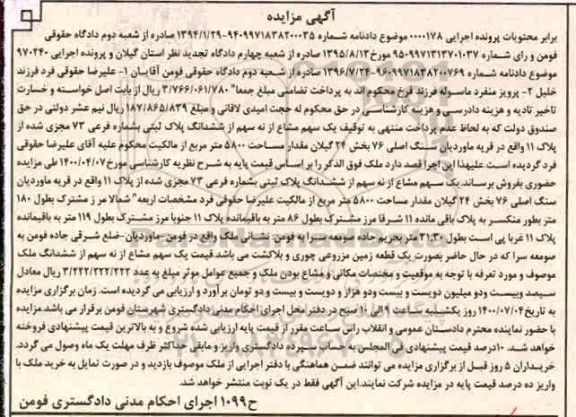 آگهی مزایده
برابر محتویات پرونده اجرایی ۰۰۰۰۱۷۸ موضوع دادنامه شماره ۹۴۰۹۹۷۱۸۳۸۲۰۰۰۳۵-۱۳۹۴/۱/۲۹ صادره از شعبه دوم دادگاه حقوقی
فومن و رای شماره ۹۵۰۹۹۷۱۳۱۳۷۰۱۰۳۷ مورخ ۱۳۹۵/۸/۱۳ صادره از شعبه چهارم دادگاه تجدید نظر استان گیلان و پرونده اجرایی ۹۷۰۲۴۰
موضوع دادنامه شماره ۹۶۰۹۹۷۱۸۳۸۲۰۰۷۶۹-۱۳۹۶/۷/۲۴ صادره از شعبه دوم دادگاه حقوقی فومن آقایان ۱- علیرضا حقوقی فرد فرزند
خلیل ۲- پرویز منفرد ماسوله فرزند فرخ محکوم اند به پرداخت تضامنی مبلغ جمعا" ۳/۷۶۶/۰۶۱/۷۸۰ ریال از بابت اصل خواسته و خسارت
تاخیر تادیه و هزینه دادرسی و هزینه کارشناسی در حق محکوم له حجت امیدی لاقانی و مبلغ ۱۸۷/۸۶۵/۸۳۹ ریال نیم عشر دولتی در حق
صندوق دولت که به لحاظ عدم پرداخت منتهی به توقیف یک سهم مشاع از نه سهم از ششدانگ پلاک ثبتی بشماره فرعی ۷۳ مجزی شده از
پلاک ۱۱ واقع در قریه ماوردیان سنگ اصلی ۷۶ بخش ۲۴ گیلان مقدار مساحت ۵۸۰۰ متر مربع از مالکیت محکوم علیه آقای علیرضا حقوقی
فرد گردیده است علیهذا این اجرا قصد دارد ملک فوق الذکر را بر اساس قیمت پایه به شرح نظریه کارشناسی مورخ ۱۴۰۰/۰۴/۰۷ طی مزایده
حضوری بفروش برساند. یک سهم مشاع از نه سهم از ششدانگ پلاک ثبتی بشماره فرعی ۷۳ مجزی شده از پلاک ۱۱ واقع در قریه ماوردیان
سنگ اصلی ۷۶ بخش ۲۴ گیلان مقدار مساحت ۵۸۰۰ متر مربع از مالکیت علیرضا حقوقی فرد مشخصات اربعه" شمالا مرز مشترک بطول ۱۸۰
متر بطور منکسر به پلاک باقی مانده ۱۱ شرقا مرز مشترک بطول ۸۶ متر به باقیمانده پلاک ۱۱ جنوبا مرز مشترک بطول ۱۱۹ متر به باقیمانده
پلاک ۱۱ غربا پی است بطول ۳۱:۳۰ متر بحریم جاده صومعه سرا به فومن، نشانی ملک واقع در فومن-ماوردیان-ضلع شرقی جاده فومن به
صومعه سرا که در حال حاضر بصورت یک قطعه زمین مزروعی چوری و بلاکشت می باشد. قیمت یک سهم مشاع از نه سهم از ششدانگ ملک
موصوف و مورد تعرفه با توجه به موقعیت و مختصات مکانی و مشاع بودن ملک و جمیع عوامل موثر مبلغ به عدد ۳/۲۲۲/۲۲۲/۲۲۲ ریال معادل
سیصد و بیست و دو میلیون دویست و بیست و دو هزار و دویست و بیست و دو تومان برآورد و ارزیابی می گردیده است. زمان برگزاری مزایده
به تاریخ ۱۴۰۰/۰۷/۰۴ روز یکشنبه ساعت ۹ الی ۱۰ صبح در دفتر محل اجرای احکام مدنی دادگستری شهرستان فومن برقرار می باشد مزایده
با حضور نماینده محترم دادستان عمومی و انقلاب راس ساعت مقرر از قیمت پایه ارزیابی شده شروع و به بالاترین قیمت پیشنهادی فروخته
خواهد شد. ۱۰ درصد قیمت پیشنهادی فی المجلس به حساب سپرده دادگستری واریز و مابقی حداکثر ظرف مهلت یک ماه وصول می گردد.
خریداران ۵ روز قبل از برگزاری مزایده می توانند ضمن هماهنگی با دفتر اجرایی از ملک موصوف بازدید و در صورت تمایل به خرید ملک با
واریز ده درصد قیمت پایه در مزایده شرکت نمایند. این آگهی فقط در یک نوبت منتشر خواهد شد.
ح۱۰۹۹ اجرای احکام مدنی دادگستری فومن